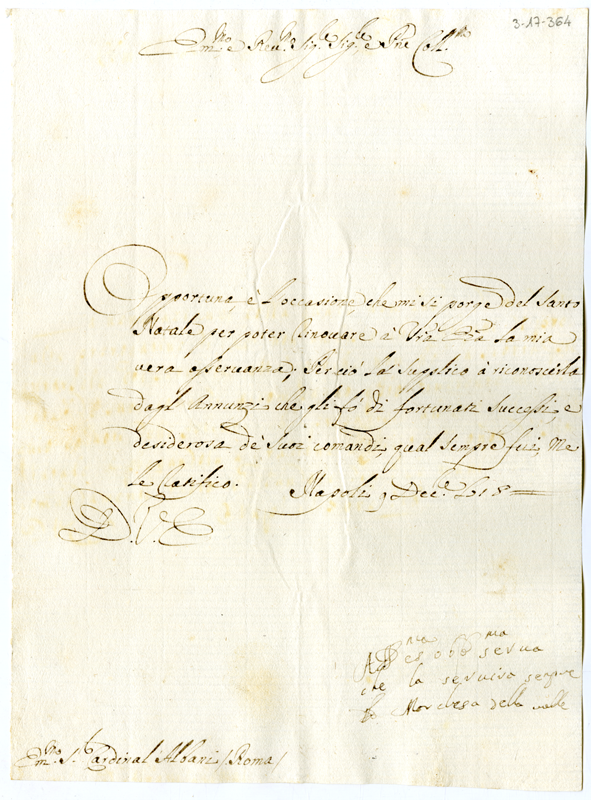 3-17-364
Em.mo e Rev.mo Sig.r Sig.r e Pne Col.mo
Opportuna, è l'occasione che mi si porge del Santo
Natale per poter rinovare à Vra Eza la mia
vera osservanza; Perciò la supplico à riconoscerla
dagl'Annunzi che gli fò di fortunati successi, e
desiderosa de suoi comandi, qual sempre fui, Me
le ratifico. Napoli 9 Dec.e
D. V. E.
serva
che la serviva sempre
la Marchesa della valle
Em.mo S. Cardinal Albani / Roma /